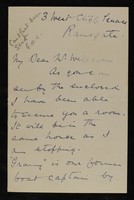 3 West Cliff Terrace
Ramsgate
My Dear Mr
As you
see by the enclosed
I have been able
to secure you a room.
It will be in the
same house as I
am stopping.
is our former
boat captain by